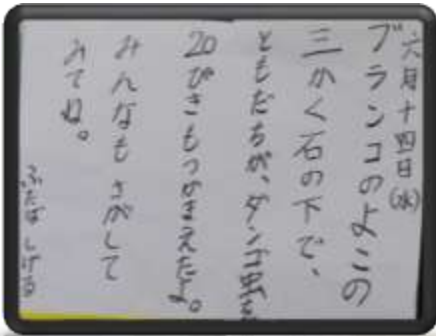 六月十四日(水)
ブランコのよこの
三かく石の下で、
ともだちが、ダンゴ虫を
20ぴきもつかまえたよ。
みんなもさがして
みてね。